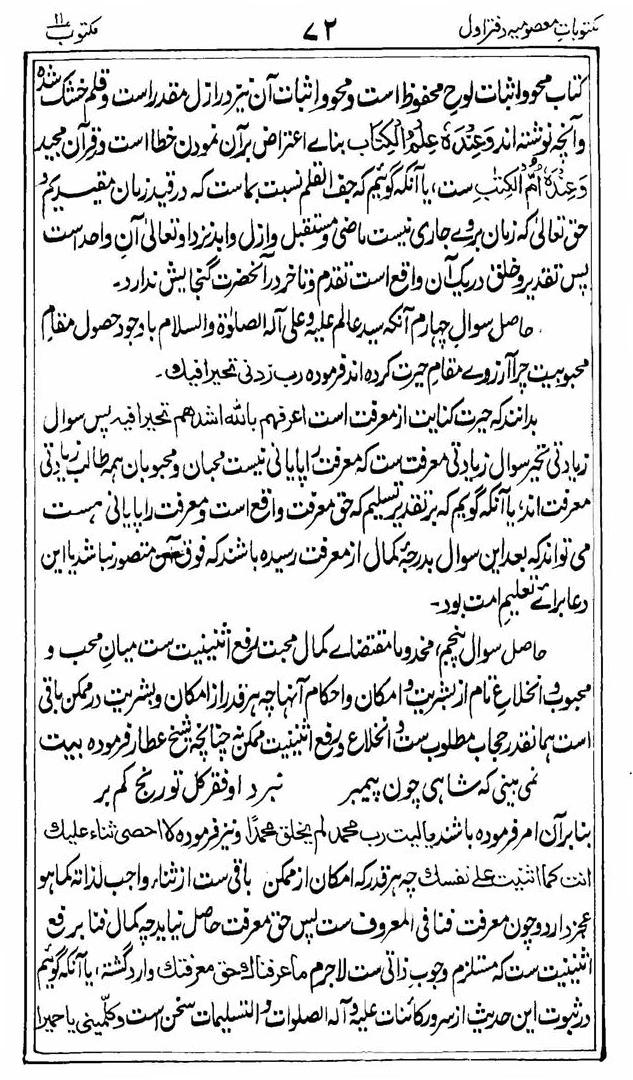 مکتوبات معصومیہ دفتر اول ۷۲ مکتوب ۲۱
کتاب محو و اثبات لوح محفوظ است و محو و اثبات آن نیز در ازل مقدر است و قلم خشک شدہ
و آنچہ نوشتہ اند وَعِنْدَهٗ عِلْمُ الْكِتَابِ بناے اعتراض بر آن نمودن خطا است و قرآن مجید
وَعِنْدَهٗ اُمُّ الْكِتٰبِ ست، یا آنکہ گوئیم کہ جف القلم نسبت بما ست کہ در قید زمان مقیدیم و
حق تعالیٰ کہ زمان بروے جاری نیست ماضی و مستقبل و ازل و ابد نزد او تعالیٰ آنِ واحد است
پس تقدیر و خلق در یک آن واقع است تقدم و تاخر در آنحضرت گنجایش ندارد۔
حاصل سوال چہارم آنکہ سید عالم علیہ و علی آلہ الصلوٰۃ والسلام با وجود حصول مقام
محبوبیت چرا آرزوے مقام حیرت کردہ اند فرمودہ رب زدنی تحیرا فیك ۔
بدانند کہ حیرت کنایت از معرفت است اعرفهم بالله اشدهم تحیرا فیه پس سوال
زیادتی تحیر سوال زیادتی معرفت ست کہ معرفت را پایانی نیست محبان و محبوبان ہمہ طالب زیادتی
معرفت اند، یا آنکہ گویم کہ بر تقدیر تسلیم کہ حق معرفت واقع است و معرفت را پایانی ہست
می تواند کہ بعد این سوال بدرجۂ کمال از معرفت رسیدہ باشند کہ فوق آن متصور نباشد یا این
دعا براے تعلیم امت بود۔
حاصل سوال پنجم، مخدوما مقتضاے کمال محبت رفع اثنینیت ست میان محب و
محبوب و انخلاع تام از بشریت و امکان و احکام آنہا چہ ہر قدر از امکان و بشریت در ممکن باقی
است ہمانقدر حجاب مطلوب ست و انخلاع و رفع اثنینیت ممکن نہ چنانچہ شیخ عطار فرمودہ بیت
نمی بینی کہ شاہی چون پیمبر نبرد او فقر کل تو رنج کم بر
بنا بر آن امر فرمودہ باشند یا لیت رب محمد لم یخلق محمدًا و نیز فرمودہ لا احصی ثناء علیك
انت کما اثنیت علی نفسك چہ ہر قدر کہ امکان از ممکن باقی ست از ثناء واجب لذاتہ کما ہو
عجز دارد و چون معرفت فنا فی المعروف ست پس حق معرفت حاصل نیاید چہ کمال فنا بر رفع
اثنینیت ست کہ مستلزم وجوب ذاتی ست لاجرم ما عرفناك حق معرفتك وارد گشتہ، یا آنکہ گوئیم
در ثبوت این حدیث از سرور کائنات علیہ و آلہ الصلوات و التسلیمات سخن است و کلّمینی یا حمیرا